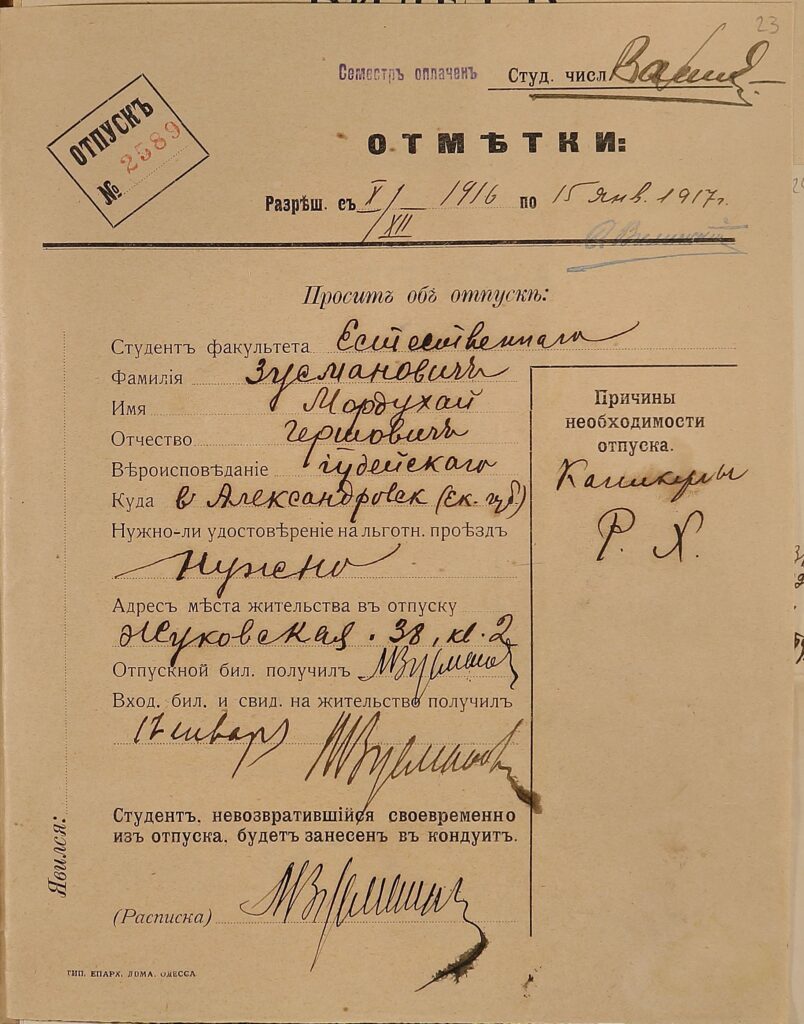 23
Семестръ оплаченъ Студ. числ
ОТПУСКЪ
№ 2589
ОТМѢТКИ:
Разрѣш. съ X/XII 1916 по 15 янв. 1917 г.
Проситъ объ отпускѣ:
Студентъ факультета Естественнаго
Фамилія Зусмановичъ
Имя Мордухай
Отчество Гершовичъ
Вѣроисповѣданіе іудейскаго
Куда в Александровск (Ек. губ.)
Нужно-ли удостовѣреніе на льготн. проѣздъ
Нужно
Адресъ мѣста жительства въ отпуску
Жуковская. 38, кв. 2
Отпускной бил. получилъ МЗусманов
Вход. бил. и свид. на жительство получилъ
17 января МЗусманов
Студентъ, невозвратившійся своевременно
изъ отпуска, будетъ занесенъ въ кондуитъ.
(Расписка) МЗусманов
Причины
необходимости
отпуска.
Каникулы
Р. Х.
Явился:
ТИП. ЕПАРХ. ДОМА. ОДЕССА